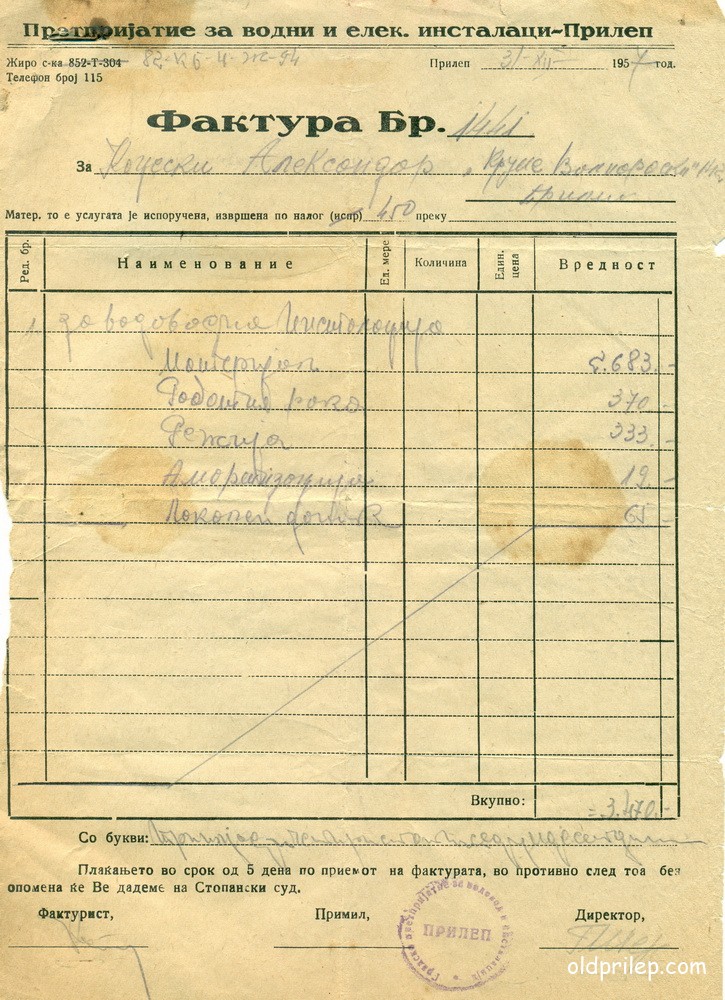 Претпријатие за водни и елек. инсталаци-Прилеп
Жиро с-ка 852-Т-304
Прилеп 31-XII- 1957 год.
Телефон број 115
Фактура Бр. 1441
За Коцески Александар
Прилеп
Матер. то е услугата је испоручена, извршена по налог (испр) 450 преку
Ред. бр. Наименование Ед. мере Количина Един. цена Вредност
1. за водоводна Инсталација
Материјал 2.683.-
Работна рака 370.-
Режија 333.-
Амортизација 19.-
Вкупно: =3.470.-
Со букви:
Плаќањето во срок од 5 дена по приемот на фактурата, во противно след тоа без
опомена ќе Ве дадеме на Стопански суд.
Фактурист, Примил, Директор,
ПРИЛЕП
oldprilep.com